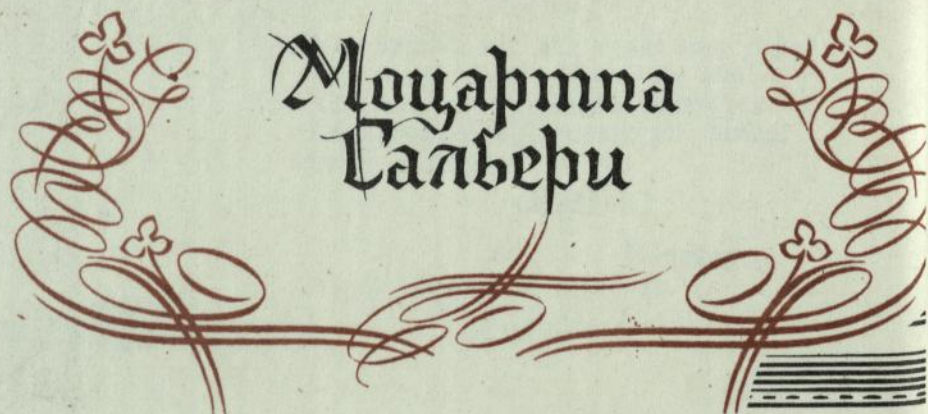 Моцартпа
Сальери